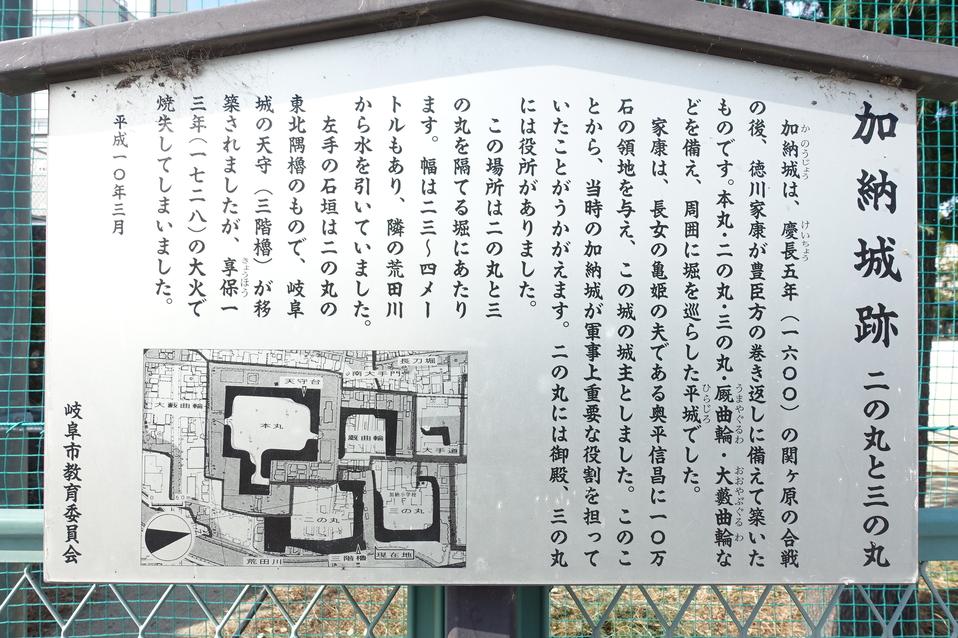 加納城跡 二の丸と三の丸
かのうじょう けいちょう
加納城は、慶長五年(一六〇〇)の関ヶ原の合戦
の後、徳川家康が豊臣方の巻き返しに備えて築いた
うまやぐるわ おおやぶぐるわ
ものです。本丸・二の丸・三の丸・厩曲輪・大藪曲輪な
ひらじろ
どを備え、周囲に堀を巡らした平城でした。
家康は、長女の亀姫の夫である奥平信昌に一〇万
石の領地を与え、この城の城主としました。このこ
とから、当時の加納城が軍事上重要な役割を担って
いたことがうかがえます。二の丸には御殿、三の丸
には役所がありました。
この場所は二の丸と三
の丸を隔てる堀にあたり
ます。幅は二三〜四メー
トルもあり、隣の荒田川
から水を引いていました。
左手の石垣は二の丸の
東北隅櫓のもので、岐阜
城の天守(三階櫓)が移
きょうほう
築されましたが、享保一
三年(一七二八)の大火で
焼失してしまいました。
平成一〇年三月
岐阜市教育委員会
長刀堀
南大手門
天守台
大藪曲輪
本丸
厩曲輪
大手道
加納小学校
三の丸
二の丸
三階櫓
現在地
荒田川